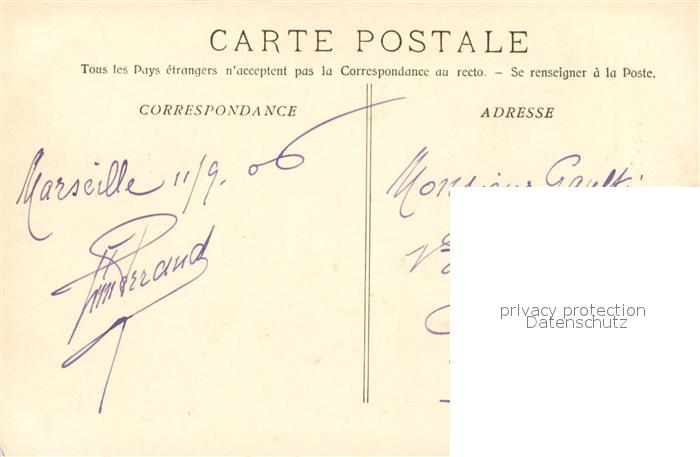 CARTE POSTALE
Tous les Pays étrangers n'acceptent pas la Correspondance au recto. - Se renseigner à la Poste.
CORRESPONDANCE
ADRESSE
Marseille 11/9. 06
Monsieur
privacy protection
Datenschutz